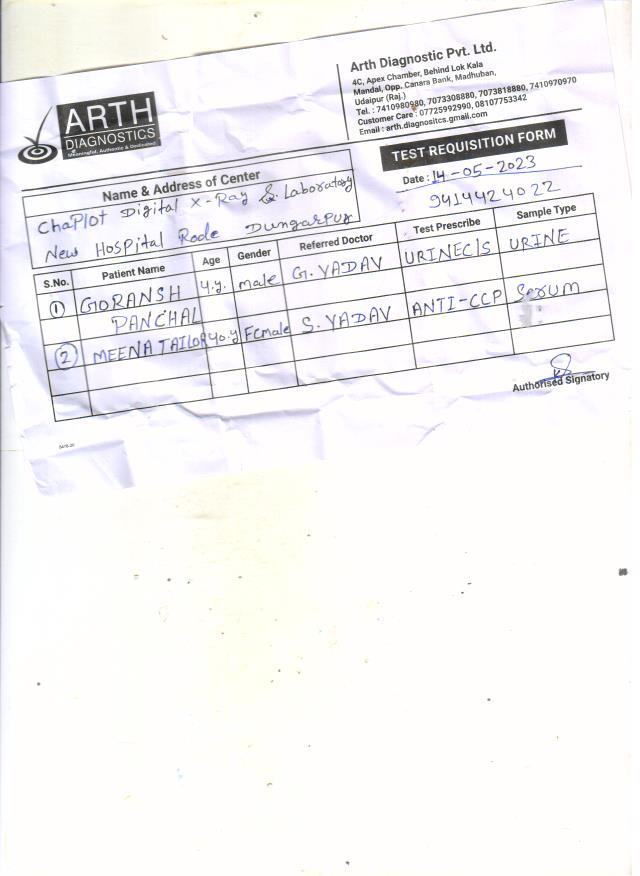 ARTH
DIAGNOSTICS
Meaningful, Authentic & Dedicated
Arth Diagnostic Pvt. Ltd.
4C, Apex Chamber, Behind Lok Kala
Mandal, Opp. Canara Bank, Madhuban,
Udaipur (Raj.)
Tel. : 7410980980, 7073308880, 7073818880, 7410970970
Customer Care : 07725992990, 08107753342
Email : arth.diagnositcs.gmail.com
TEST REQUISITION FORM
Date : 14-05-2023
9414424022
Name & Address of Center
Chaplot Digital X-Ray & Laboratory
New Hospital Rode Dungarpur
S.No. Patient Name Age Gender Referred Doctor Test Prescribe Sample Type
1 GORANSH PANCHAL 4.y. male G. YADAV URINE C/S URINE
2 MEENA TAILOR 40.y Female S. YADAV ANTI-CCP Serum
Authorised Signatory